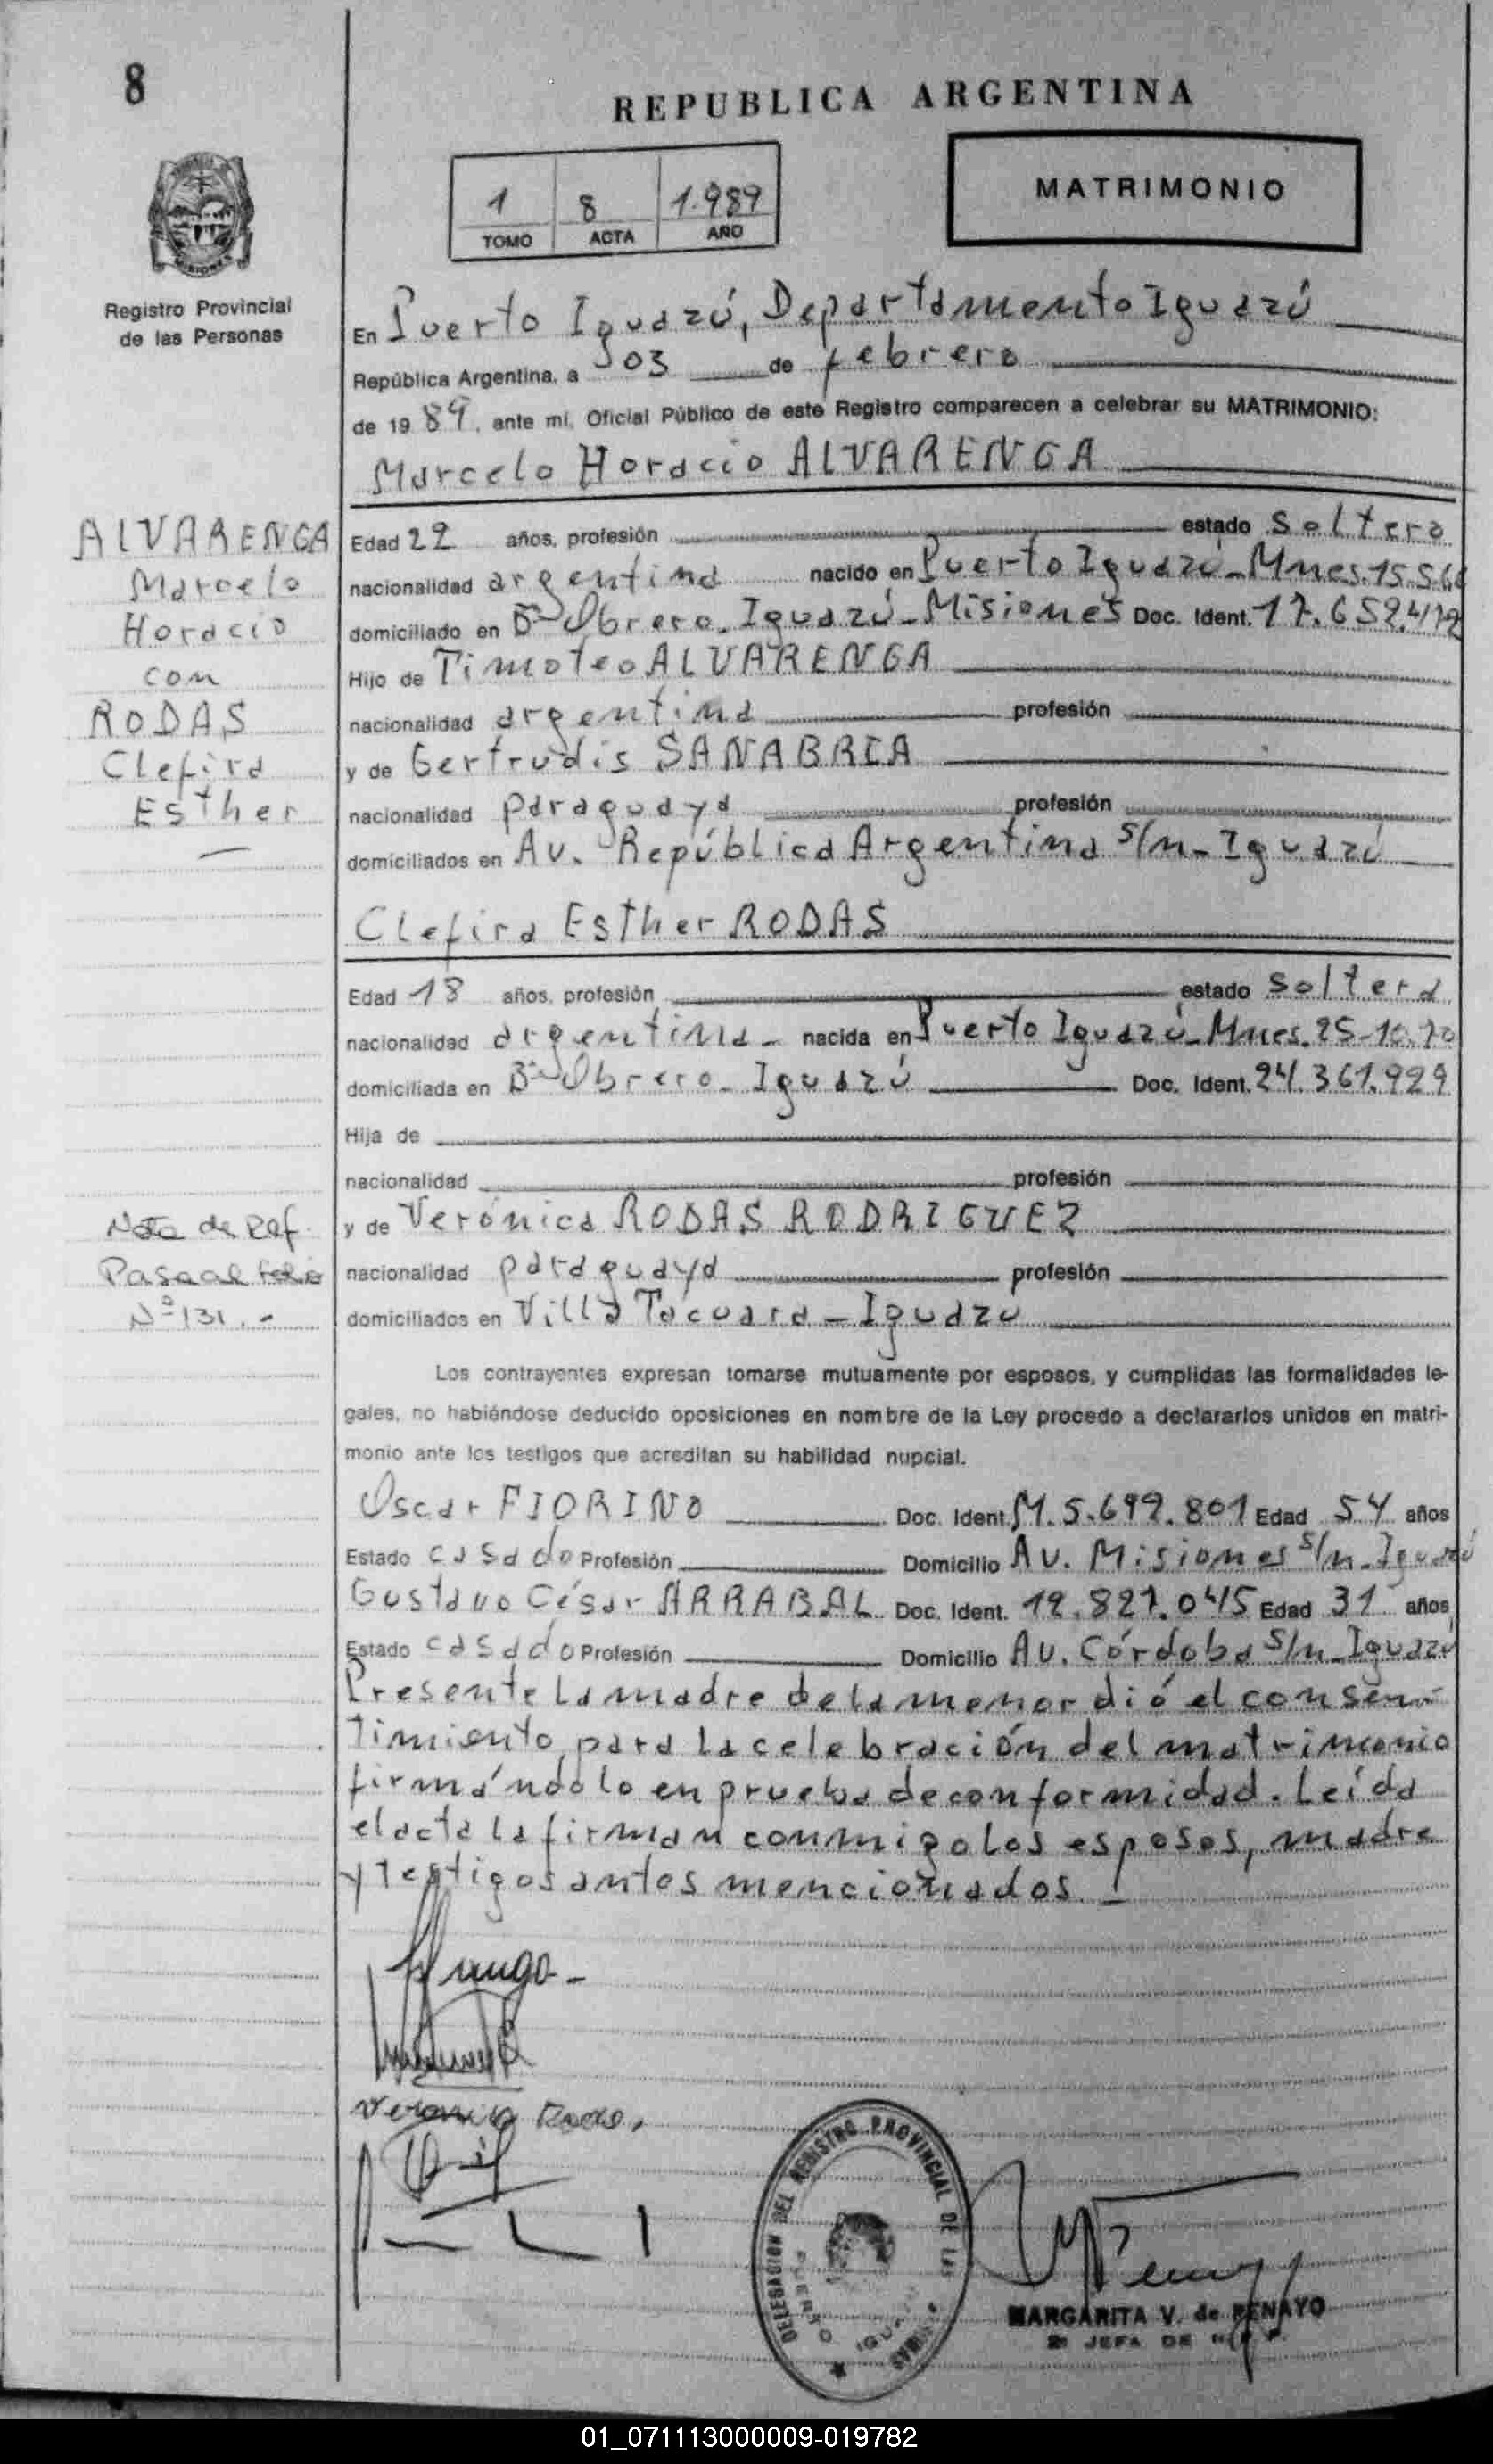 8
REPUBLICA ARGENTINA
1 8 1.989
TOMO ACTA AÑO
MATRIMONIO
MISIONES
Registro Provincial
de las Personas
En Puerto Iguazú, Departamento Iguazú
República Argentina, a 03 de febrero
de 19 89, ante mí, Oficial Público de este Registro comparecen a celebrar su MATRIMONIO:
Marcelo Horacio ALVARENGA
ALVARENGA
Marcelo
Horacio
con
RODAS
Clefira
Esther
Edad 22 años, profesión estado Soltero
nacionalidad argentina nacido en Puerto Iguazú-Mnes. 15.5.66
domiciliado en Bº Obrero-Iguazú-Misiones Doc. Ident. 17.652.412
Hijo de Timoteo ALVARENGA
nacionalidad argentina profesión
y de Gertrudis SANABRIA
nacionalidad paraguaya profesión
domiciliados en Av. República Argentina s/n-Iguazú
Clefira Esther RODAS
Edad 18 años, profesión estado Soltera
nacionalidad argentina- nacida en Puerto Iguazú-Mnes. 25-10.70
domiciliada en Bº Obrero-Iguazú Doc. Ident. 24.361.929
Hija de
nacionalidad profesión
y de Verónica RODAS RODRIGUEZ
nacionalidad paraguaya profesión
domiciliados en Villa Tacuara-Iguazu
Nota de Ref.
Pasa al folio
Nº 131.-
Los contrayentes expresan tomarse mutuamente por esposos, y cumplidas las formalidades le-
gales, no habiéndose deducido oposiciones en nombre de la Ley procedo a declararlos unidos en matri-
monio ante los testigos que acreditan su habilidad nupcial.
Oscar FIORINO Doc. Ident. M.5.699.801 Edad 54 años
Estado casado Profesión Domicilio Av. Misiones s/n-Iguazú
Gustavo César ARRABAL Doc. Ident. 12.827.045 Edad 31 años
Estado casado Profesión Domicilio Av. Córdoba s/n-Iguazú
Presente la madre de la menor dió el consen-
timiento para la celebración del matrimonio
firmándolo en prueba de conformidad. Leída
el acta la firman conmigo los esposos, madre
y testigos antes mencionados.-
Veronica Rodas,
DELEGACION DEL REGISTRO PROVINCIAL DE LAS PERSONAS
PUERTO IGUAZU
MARGARITA V. de PENAYO
JEFA DE
01_071113000009-019782